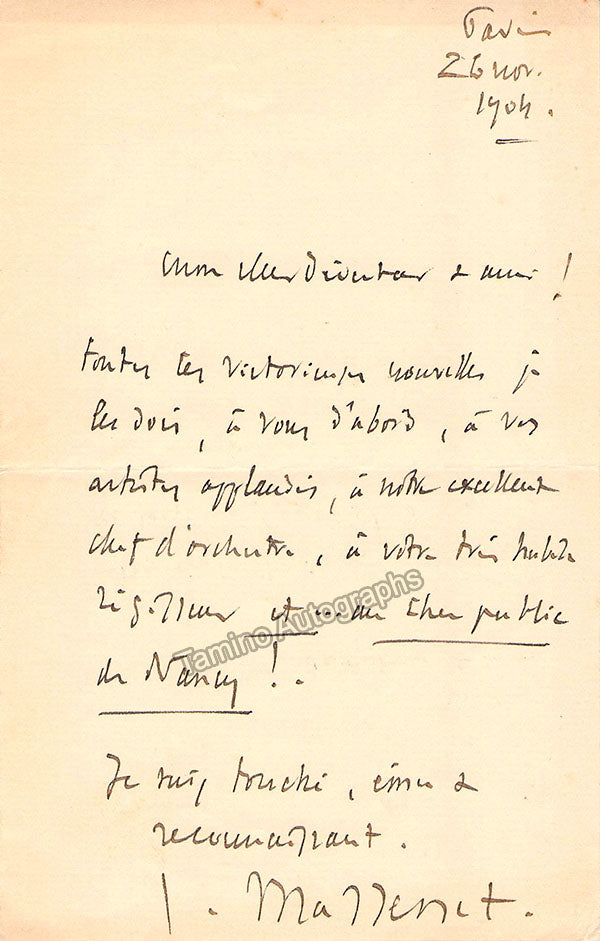 Paris
26 nov.
1904.
Mon cher Directeur & ami !
toutes les victorieuses nouvelles je
les dois, à vous d'abord, à vos
artistes applaudis, à notre excellent
chef d'orchestre, à votre très habile
régisseur et... au cher public
de Nancy !.
Tamino Autographs
Je suis touché, ému &
reconnaissant.
J. Massenet.